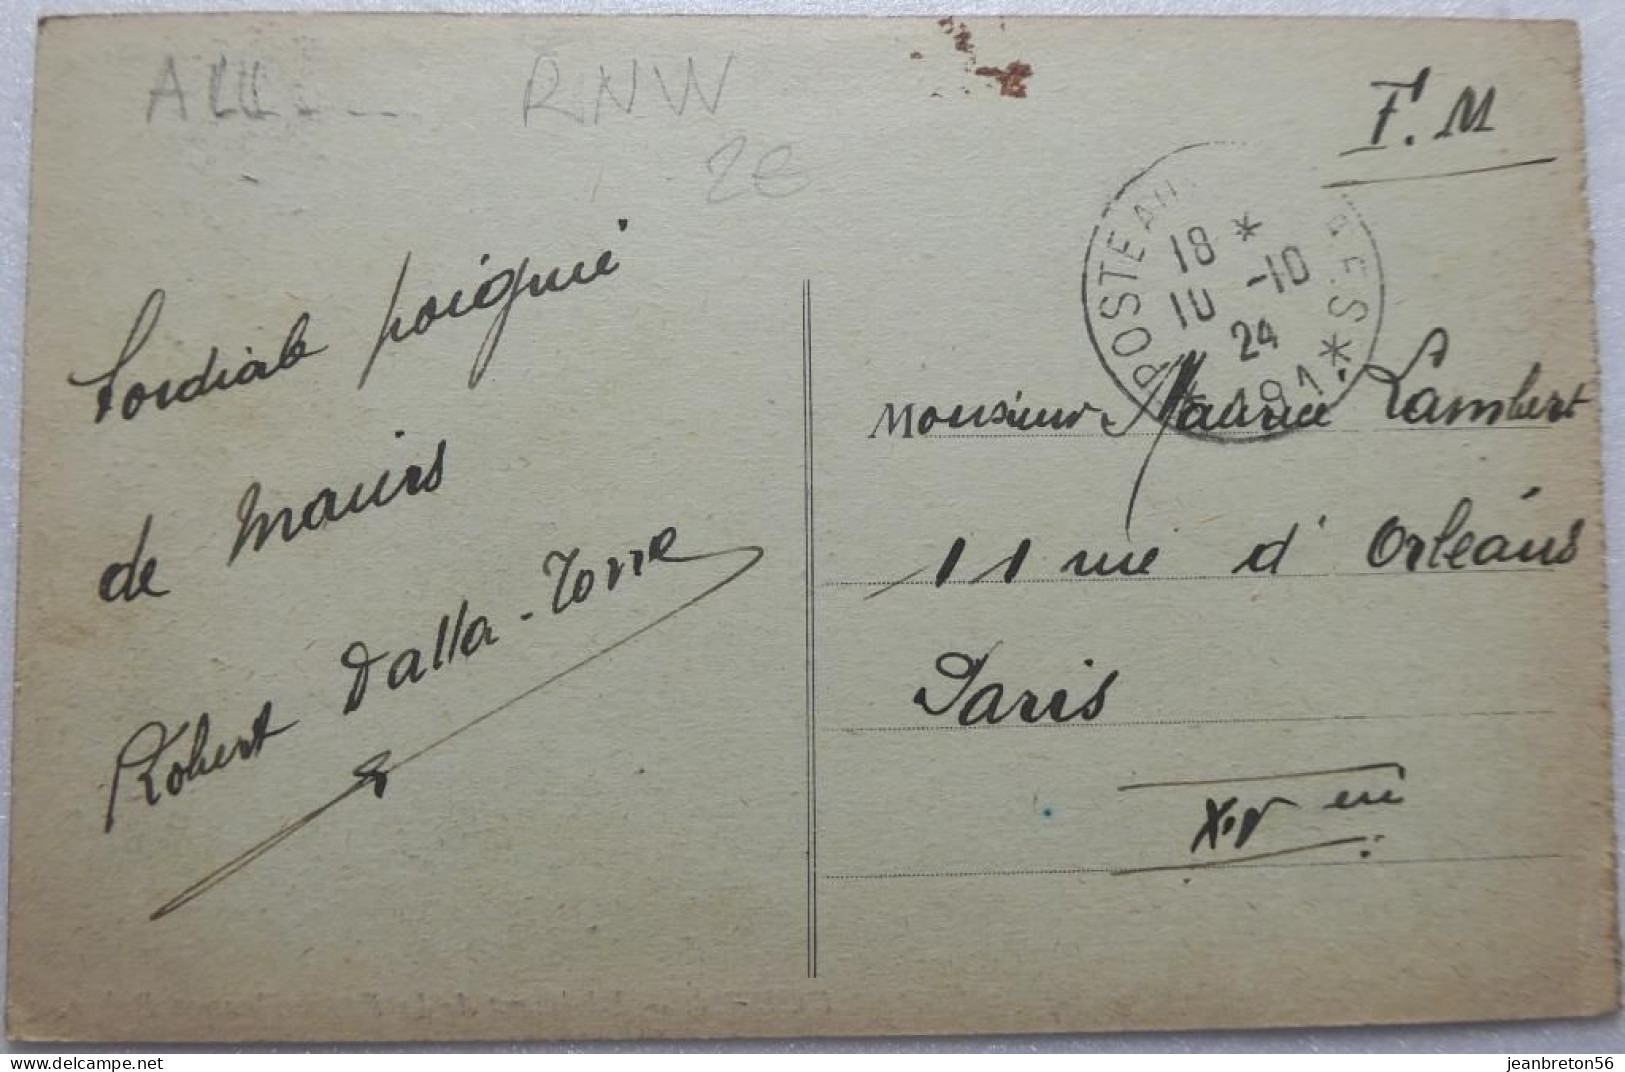 ALL
RNW
2e
F.M
POSTE AUX ARMÉES
18 *
10 -10
24
* 181 *
Cordiale poignée
de mains
Robert Dalla-Torre
Monsieur Maurice Lambert
11 rue d'Orléans
Paris
XIV em
jeanbreton56